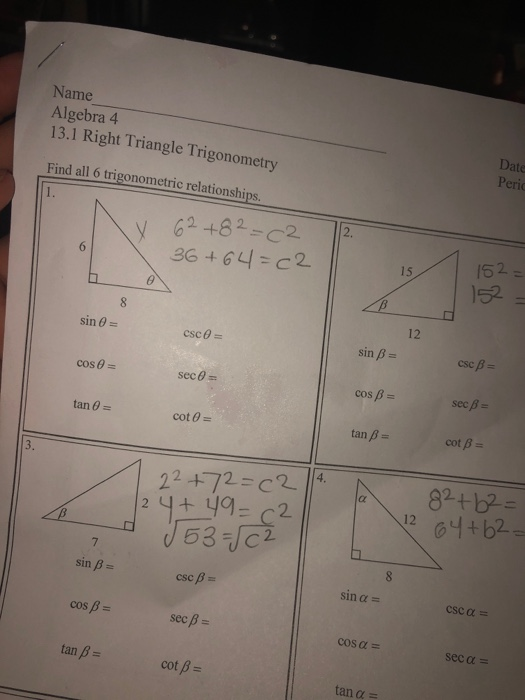 Name
Algebra 4
13.1 Right Triangle Trigonometry
Date
Find all 6 trigonometric relationships.
1.
6
8
θ
y 6² + 8² = c2
36 + 64 = c2
sin θ =
csc θ =
cos θ =
sec θ =
tan θ =
cot θ =
2.
15
β
12
15² =
15² =
sin β =
csc β =
cos β =
sec β =
tan β =
cot β =
3.
β
2
7
2² + 7² = c2
4 + 49 = c2
√53 = √c2
sin β =
csc β =
cos β =
sec β =
tan β =
cot β =
4.
α
12
8
8² + b² =
64 + b² =
sin α =
csc α =
cos α =
sec α =
tan α =